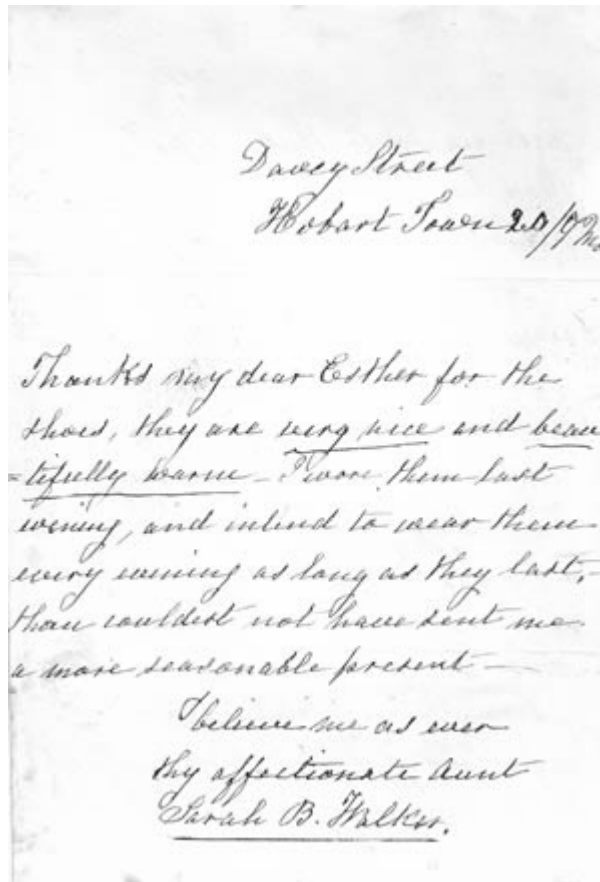 Davey Street
Hobart Town 20/9 Mo
Thanks my dear Esther for the
shoes, they are very nice and beau
=tifully warm - I wore them last
evening, and intend to wear them
every evening as long as they last, -
thou couldest not have sent me
a more seasonable present -
believe me as ever
thy affectionate Aunt
Sarah B. Walker.